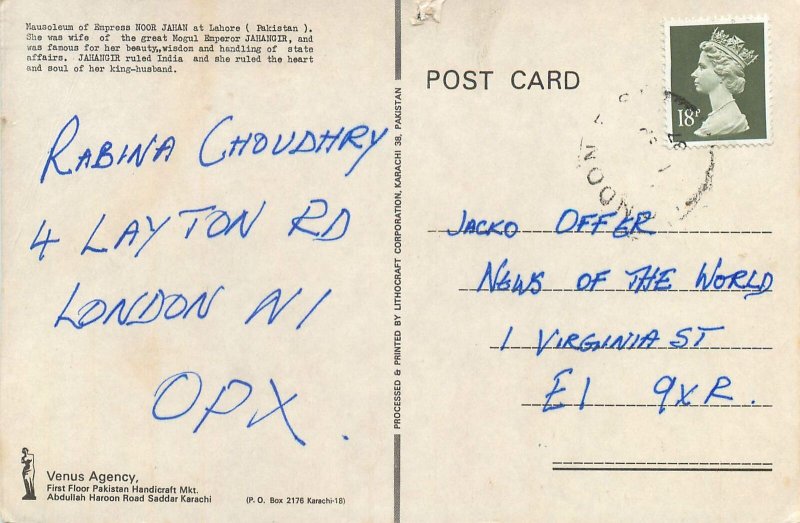 Mausoleum of Empress NOOR JAHAN at Lahore ( Pakistan ).
She was wife of the great Mogul Emperor JAHANGIR, and
was famous for her beauty,wisdom and handling of state
affairs. JAHANGIR ruled India and she ruled the heart
and soul of her king-husband.
RABINA CHOUDHRY
4 LAYTON RD
LONDON N1
OPX.
Venus Agency,
First Floor Pakistan Handicraft Mkt.
Abdullah Haroon Road Saddar Karachi
(P. O. Box 2176 Karachi-18)
PROCESSED & PRINTED BY LITHOCRAFT CORPORATION, KARACHI 38, PAKISTAN
POST CARD
18P
JACKO OFFER
NEWS OF THE WORLD
1 VIRGINIA ST
E1 9XR.